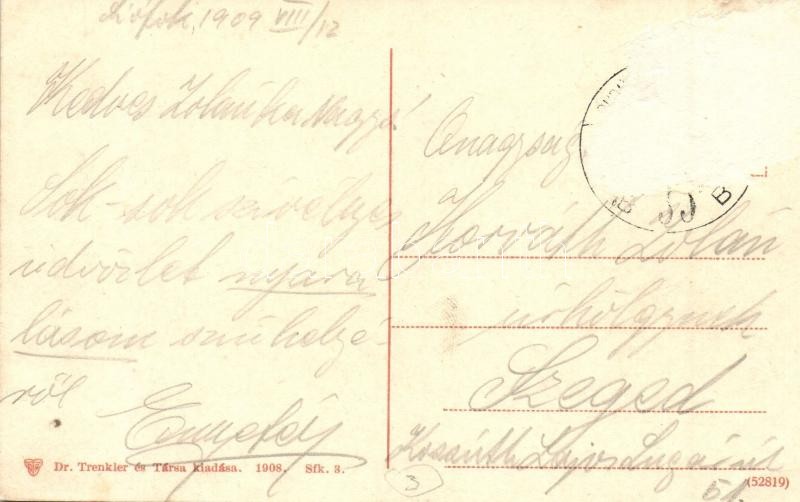 Siófok, 1909 VIII/12
Kedves Zolánka Nagysá
Sok-sok szívélyes
üdvözlet nyara
lásom színhelyé-
ről
Dr. Trenkler és Társa kiadása. 1908. Sfk. 3.
Őnagyság
Horváth Zolán
úrhölgynek
Szeged
Kossuth Lajos Sugárút
51
3
(52819)
B 55 B